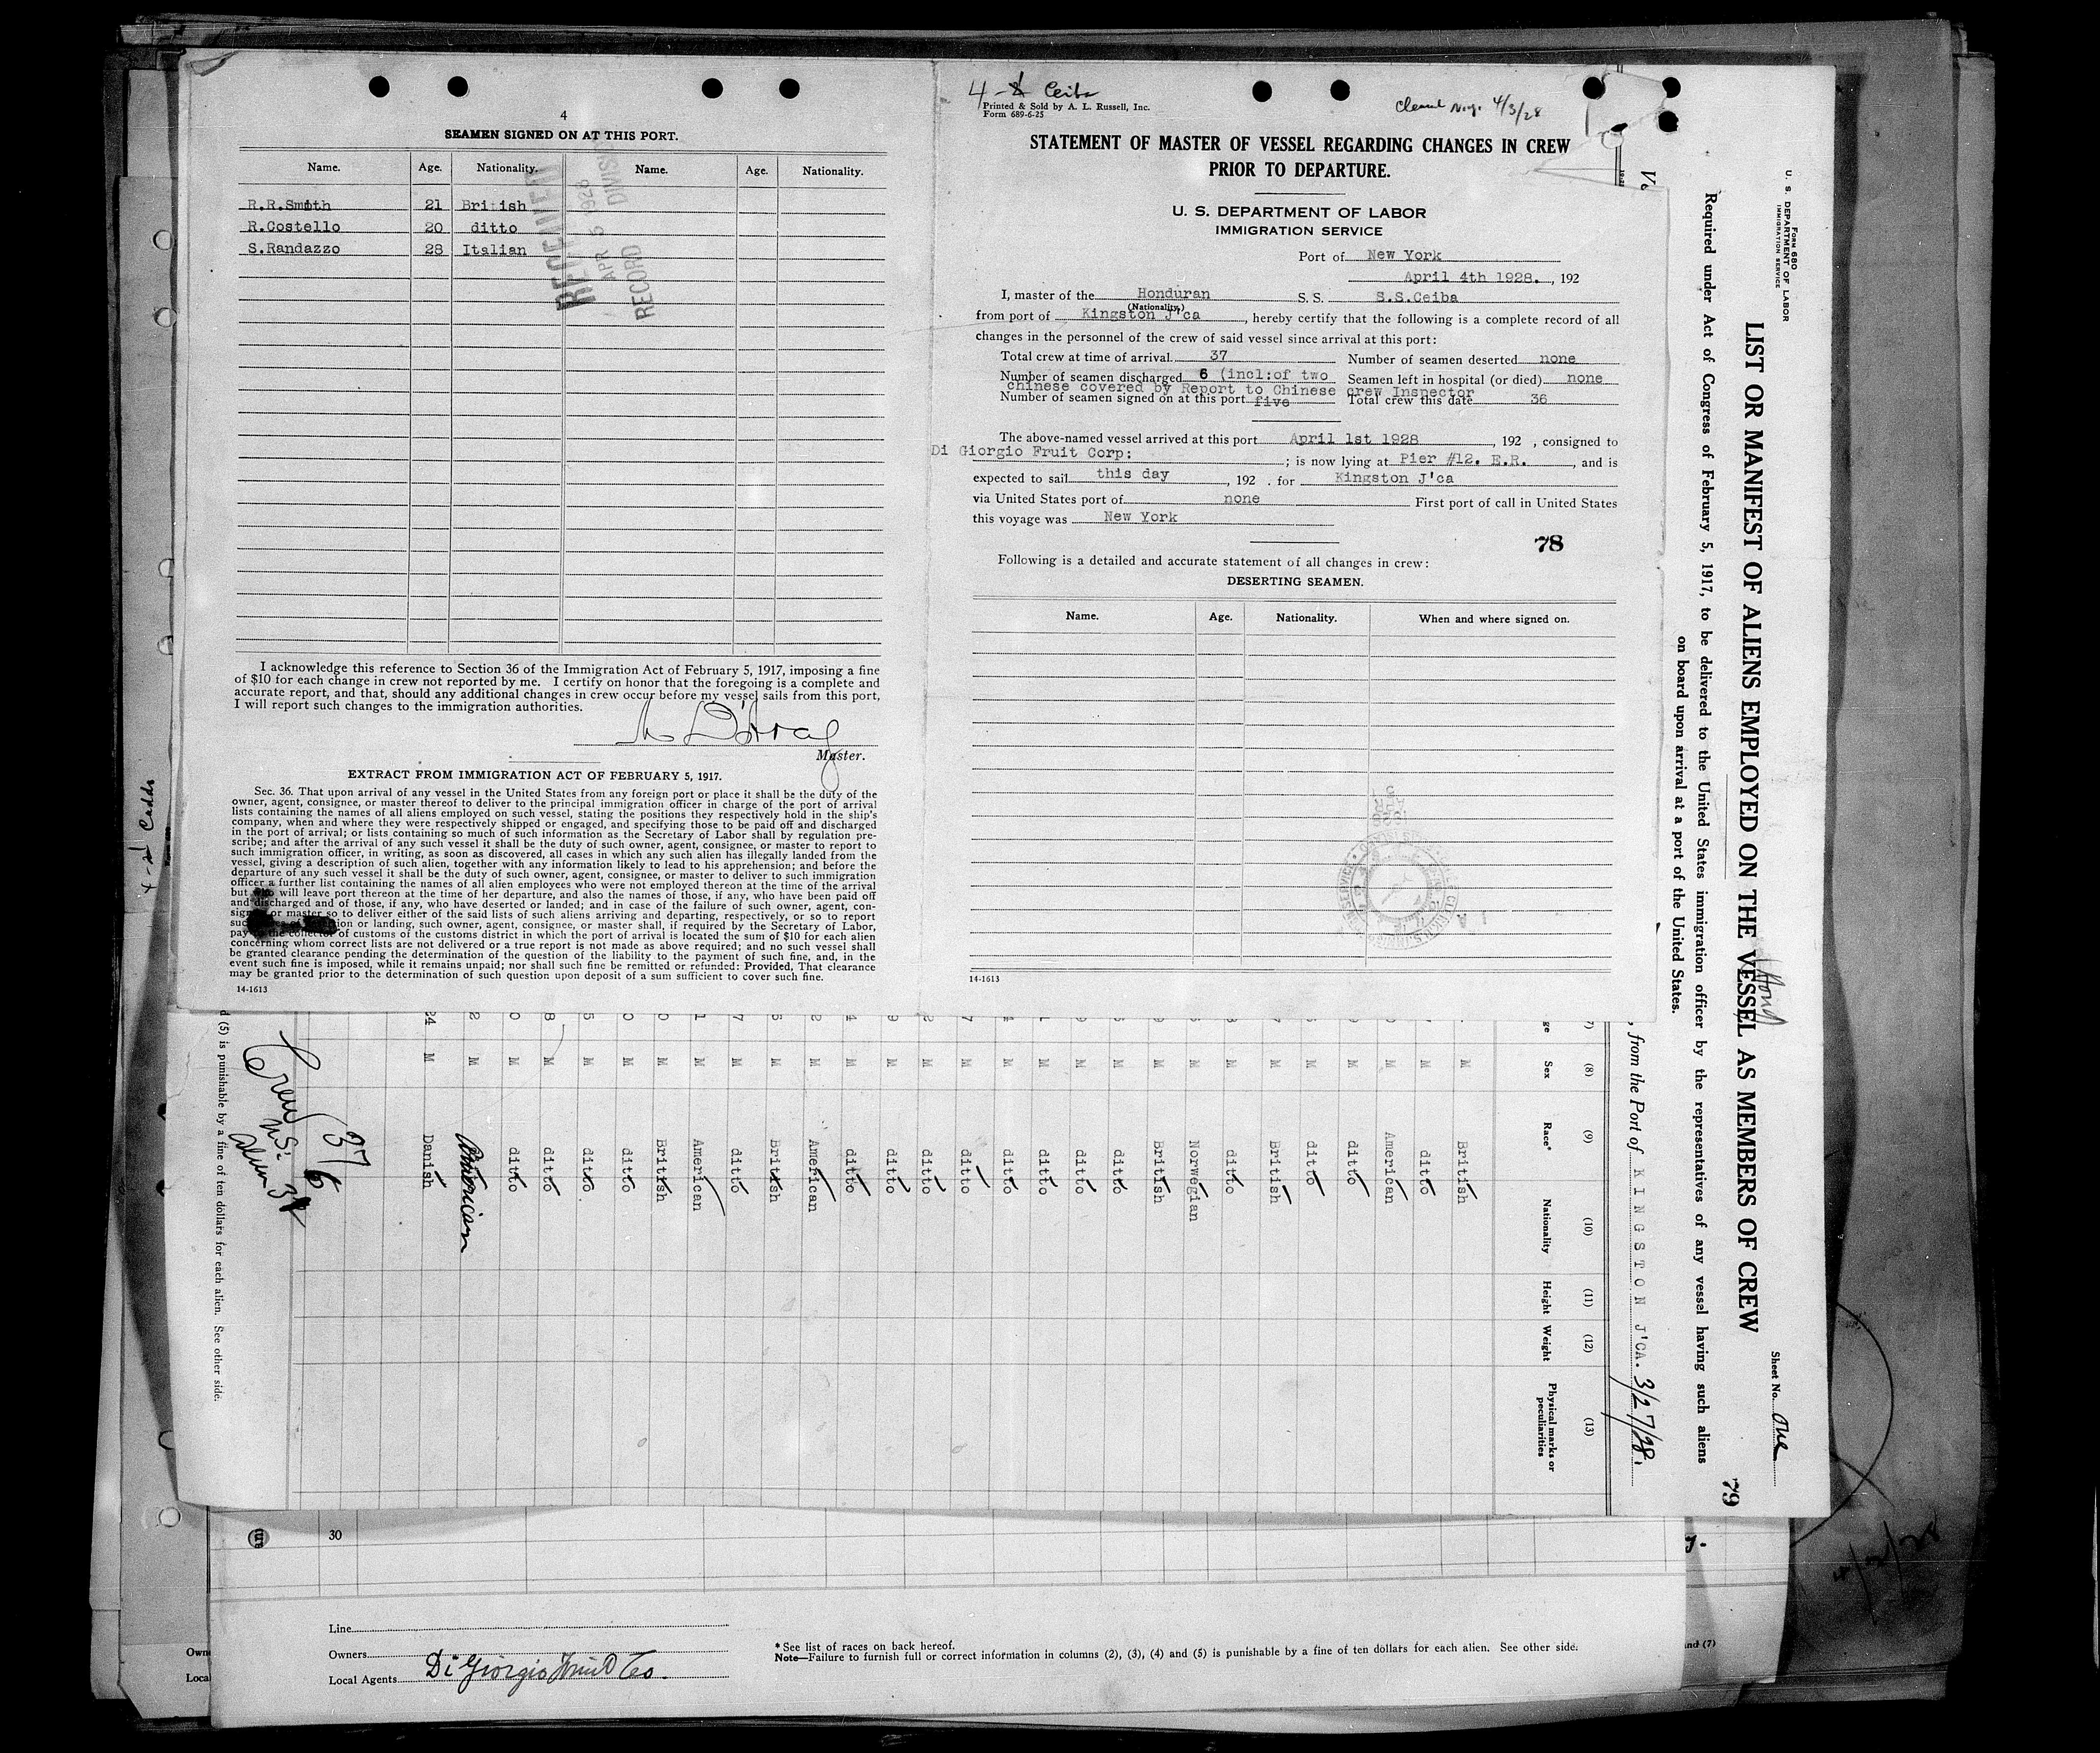 4
SEAMEN SIGNED ON AT THIS PORT.
Name. Age. Nationality. Name. Age. Nationality.
R.R.Smith 21 British
R.Costello 20 ditto
S.Randazzo 28 Italian
RECEIVED
APR 5 1928
RECORD DIVISION
I acknowledge this reference to Section 36 of the Immigration Act of February 5, 1917, imposing a fine
of $10 for each change in crew not reported by me. I certify on honor that the foregoing is a complete and
accurate report, and that, should any additional changes in crew occur before my vessel sails from this port,
I will report such changes to the immigration authorities.
Master.
EXTRACT FROM IMMIGRATION ACT OF FEBRUARY 5, 1917.
Sec. 36. That upon arrival of any vessel in the United States from any foreign port or place it shall be the duty of the
owner, agent, consignee, or master thereof to deliver to the principal immigration officer in charge of the port of arrival
lists containing the names of all aliens employed on such vessel, stating the positions they respectively hold in the ship's
company, when and where they were respectively shipped or engaged, and specifying those to be paid off and discharged
in the port of arrival; or lists containing so much of such information as the Secretary of Labor shall by regulation pre-
scribe; and after the arrival of any such vessel it shall be the duty of such owner, agent, consignee, or master to report to
such immigration officer, in writing, as soon as discovered, all cases in which any such alien has illegally landed from the
vessel, giving a description of such alien, together with any information likely to lead to his apprehension; and before the
departure of any such vessel it shall be the duty of such owner, agent, consignee, or master to deliver to such immigration
officer a further list containing the names of all alien employees who were not employed thereon at the time of the arrival
but will leave port thereon at the time of her departure, and also the names of those, if any, who have been paid off
and discharged and of those, if any, who have deserted or landed; and in case of the failure of such owner, agent, con-
or master so to deliver either of the said lists of such aliens arriving and departing, respectively, or so to report
or landing, such owner, agent, consignee, or master shall, if required by the Secretary of Labor,
pay collector of customs of the customs district in which the port of arrival is located the sum of $10 for each alien
concerning whom correct lists are not delivered or a true report is not made as above required; and no such vessel shall
be granted clearance pending the determination of the question of the liability to the payment of such fine, and, in the
event such fine is imposed, while it remains unpaid; nor shall such fine be remitted or refunded: Provided, That clearance
may be granted prior to the determination of such question upon deposit of a sum sufficient to cover such fine.
14-1613
4- Ceiba
Printed & Sold by A. L. Russell, Inc.
Form 689-6-25
4/3/28
STATEMENT OF MASTER OF VESSEL REGARDING CHANGES IN CREW
PRIOR TO DEPARTURE.
U. S. DEPARTMENT OF LABOR
IMMIGRATION SERVICE
Port of New York
April 4th 1928. , 192
I, master of the Honduran S. S. S.S.Ceiba
(Nationality.)
from port of Kingston J'ca , hereby certify that the following is a complete record of all
changes in the personnel of the crew of said vessel since arrival at this port:
Total crew at time of arrival 37 Number of seamen deserted none
Number of seamen discharged 6 (incl:of two Seamen left in hospital (or died) none
chinese covered by Report to Chinese crew Inspector
Number of seamen signed on at this port five Total crew this date 36
The above-named vessel arrived at this port April 1st 1928 , 192 , consigned to
Di Giorgio Fruit Corp: ; is now lying at Pier #12. E.R. , and is
expected to sail this day , 192 . for Kingston J'ca
via United States port of none First port of call in United States
this voyage was New York
78
Following is a detailed and accurate statement of all changes in crew:
DESERTING SEAMEN.
Name. Age. Nationality. When and where signed on.
14-1613
Form 680
U. S. DEPARTMENT OF LABOR
IMMIGRATION SERVICE
Sheet No. one
LIST OR MANIFEST OF ALIENS EMPLOYED ON THE VESSEL AS MEMBERS OF CREW
79
Required under Act of Congress of February 5, 1917, to be delivered to the United States immigration officer by the representatives of any vessel having such aliens
on board upon arrival at a port of the United States.
, from the Port of KINGSTON J'CA. 3/27/28.
(8) (9) (10) (11) (12) (13)
Sex Race* Nationality Height Weight Physical marks or peculiarities
M British
M ditto
M American
M ditto
M ditto
M British
M ditto
M Norwegian
M British
M ditto
M ditto
M ditto
M ditto
M ditto
M ditto
M ditto
M ditto
M American
M British
M ditto
M American
M British
M ditto
M ditto
M ditto
M ditto
M American
24 M Danish
Crew 37
U.S. 6
(5) is punishable by a fine of ten dollars for each alien. See other side.
30
Line
Owners
Local Agents Di Giorgio Fruit Co.
* See list of races on back hereof.
Note—Failure to furnish full or correct information in columns (2), (3), (4) and (5) is punishable by a fine of ten dollars for each alien. See other side.
and (7)
4/2/28